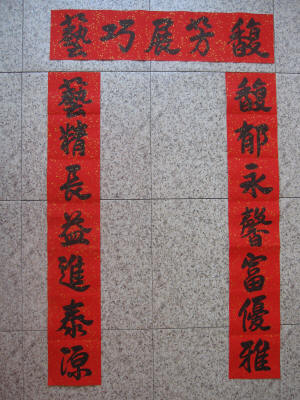 馥芳展巧藝
馥郁永馨富優雅
藝精長益進泰源